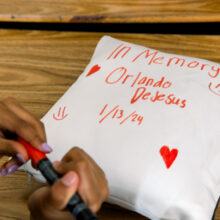 In Memory
Orlando
DeJesus
1/13/24